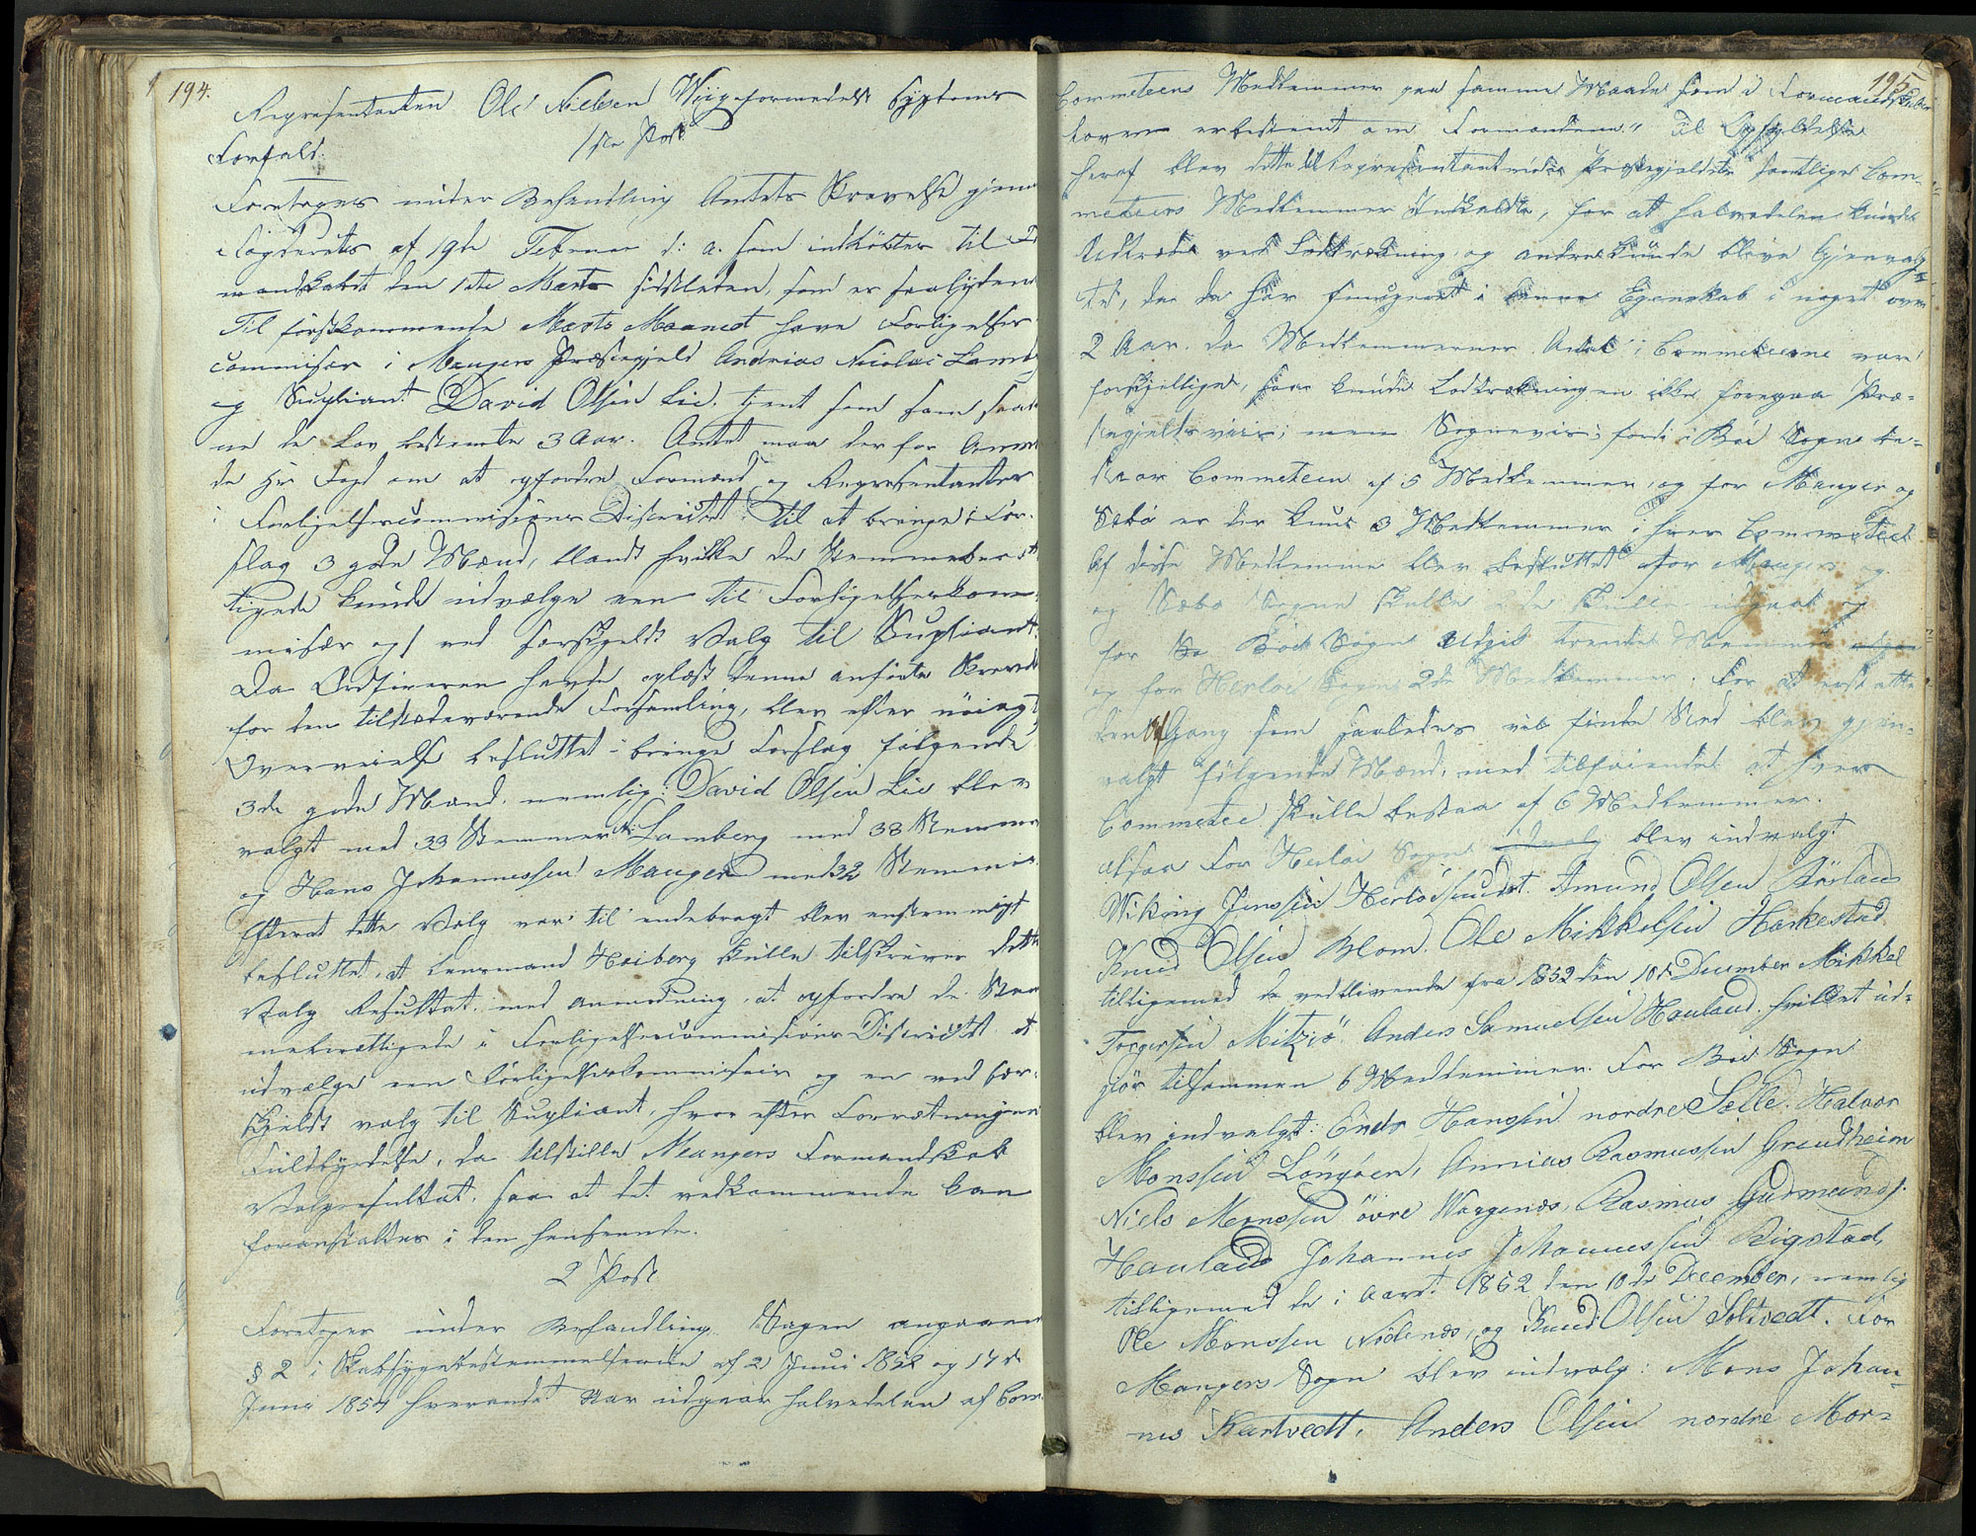 194.
Repræsentanten Ole Nielsen Wiig formedelst Sygdoms
Forfald.
1ste Post
Foretoges under Behandling Amtets Skrivelse gjen-
Fogderiets af 19de Februar d: a. som indkötes til For
mandskabet den 1ste Marts sidstleden, som er saalydende
Til förstkommende Marts Maaned have Forligelses
commisær i Mangers Præstegjeld Andreas Nicolai Lamb
og Supliant David Olsen Lie, tjent som som saa
ne de Lov bestemte 3 Aar. Amtet maa derfor anmo
de Hr Fogd om at opfordre Formænd og Repræsentanter
i Forligelsescommisions Districtet til at bringe i For-
slag 3 gode Mænd, blandt hvilke de Stemmeberet
tigede kunde udvælge een til Forligelseskom
misær og ved særskildt Valg til Supliant.
Da Ordföreren havde oplæst denne anförte Skrivelse
for den tilstedeværende Forsamling, blev efter nöiagt
Overveielse besluttet i bringe Forslag fölgende
3de gode Mænd, nemlig: David Olsen Lie blev
valgt med 33 Stemmer N: Lamberg med 38 Stemme
og Hans Johannessen Manger med 32 Stemmer.
Efterat dette Valg var til endebragt blev enstemmigt
besluttet, at Lensmand Heiberg skulle tilskriver dette
Valg Resultat, med anmodning, at opfordre de Stem
meberettigede i Forligelsescommisions Districtet at
udvælge een Forligelseskommisair og en ved sær-
skjeldt valg til Supliant, hvor efter Forretningens
Fuldbyrdelse, da tilstille Mangers Formandskab
Valgresultat, saa at det vedkommende kan
foranstaltes i den henseende.
2 Post
Foretoges under Behandling Sagen angaaende
§ 2 i Skabsygebestemmelserne af 2 Juni 1852 og 14de
Juni 1854 hverandet Aar udgaar halvedelen af Com
195
Commeteens Medlemmer paa samme Maade som i Formandskabs
loven er bestemt om Formændene." Til Opfyldelse
heraf blev dette til Repræsentantmöde Præstegjeldets samtlige Com-
meteens Medlemmer Indkaldte, for at halvedelen kunde
Udtræde ved Lodtrækning og andre kunde blive Gjenvalg
te, da de har fungeret i denne Egenskab i noget over
2 Aar. Da Medlemmernes Antal i Commeteerne var
forskjellige, saa kunde Lodtrækningen ikke foregaa Præ-
stegjeldsviis; men Sognevis; fordi i Böe Sogn be-
staar Commeteen af 5 Medlemmer, og for Manger og
Sæbö er der kuns 3 Medlemmer i hver Commetee
Af disse Medlemme blev besluttet for Mangers og
og Sæbö Sogne skulle 2de skulle udgaa og
for Böe Sogn Udgik trende Stemmer
og for Herlöe Sogn 2de Medlemmer. For at erstatte
den Afgang som saaledes vil finde Sted blev gjen-
valgt fölgende Mænd, med tilföiende at hver
Commetee skulle bestaa af 6 Medlemmer.
altsaa For Herlöe Sogn blev indvalgt
Wiking Jenssen Herlösundet. Amund Olsen Börland
Knud Olsen Blom. Ole Mikkelsen Hankestad
tilligemed de vedblivende fra 1852 den 10de December Mikkel
Torgersen Mitziö. Anders Samuelsen Hauland. hvilket ud-
gjör tilsammen 6 Medlemmer. For Böe Sogn
blev indvalgt: Ends Hanssen nordre Sælle. Halvor
Monssen Löngöen, Annias Rasmussen Grendheim
Niels Monssen övre Wargenæs, Rasmus Gudmunds.
Hauland Johannes Johannessen Rigstad,
tilligemed de i Aaret 1852 den 10de December, nemlig
Ole Monssen Nödenæs, og Knud Olsen Soltvedt. For
Mangers Sogn blev indvalg: Mons Johan-
nes Kartvedt, Anders Olsen nordre Mor-